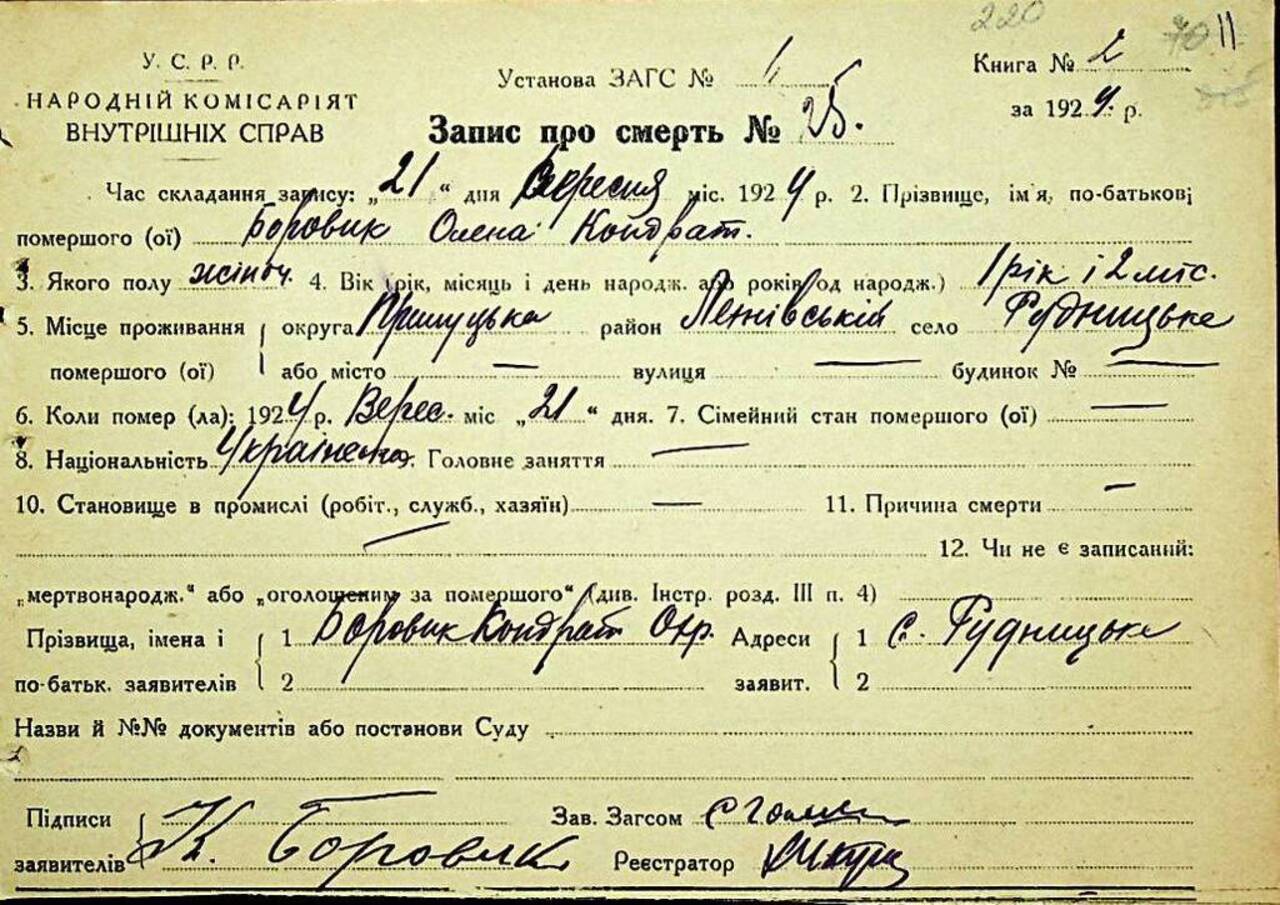 220 11
У. С. Р. Р.
НАРОДНІЙ КОМІСАРІЯТ
ВНУТРІШНІХ СПРАВ
Установа ЗАГС №
Книга № 2
за 1924 р.
Запис про смерть № 25.
Час складання запису: „21“ дня Вересня міс. 1924 р. 2. Прізвище, ім'я, по-батькові
помершого (ої) Боровик Олена Кондрат.
3. Якого полу жіноч. 4. Вік (рік, місяць і день народж. або років од народж.) 1 рік і 2 міс.
5. Місце проживання округа Прилуцька район село Рудницьке
помершого (ої) або місто — вулиця — будинок № —
6. Коли помер (ла): 1924 р. Верес. міс „21“ дня. 7. Сімейний стан помершого (ої) —
8. Національність Українська. Головне заняття —
10. Становище в промислі (робіт., служб., хазяїн) — 11. Причина смерти —
— 12. Чи не є записаний:
„мертвонародж.“ або „оголошеним за помершого“ (див. Інстр. розд. III п. 4)
Прізвища, імена і 1 Боровик Кондрат Адреси 1 с. Рудницьке
по-батьк. заявителів 2 заявит. 2
Назви й №№ документів або постанови Суду
Підписи Зав. Загсом
заявителів К. Боровик Реєстратор